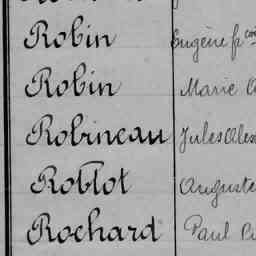 Robin Eugène fcois
Robin Marie
Robineau Jules Alex
Roblot Auguste
Rochard Paul